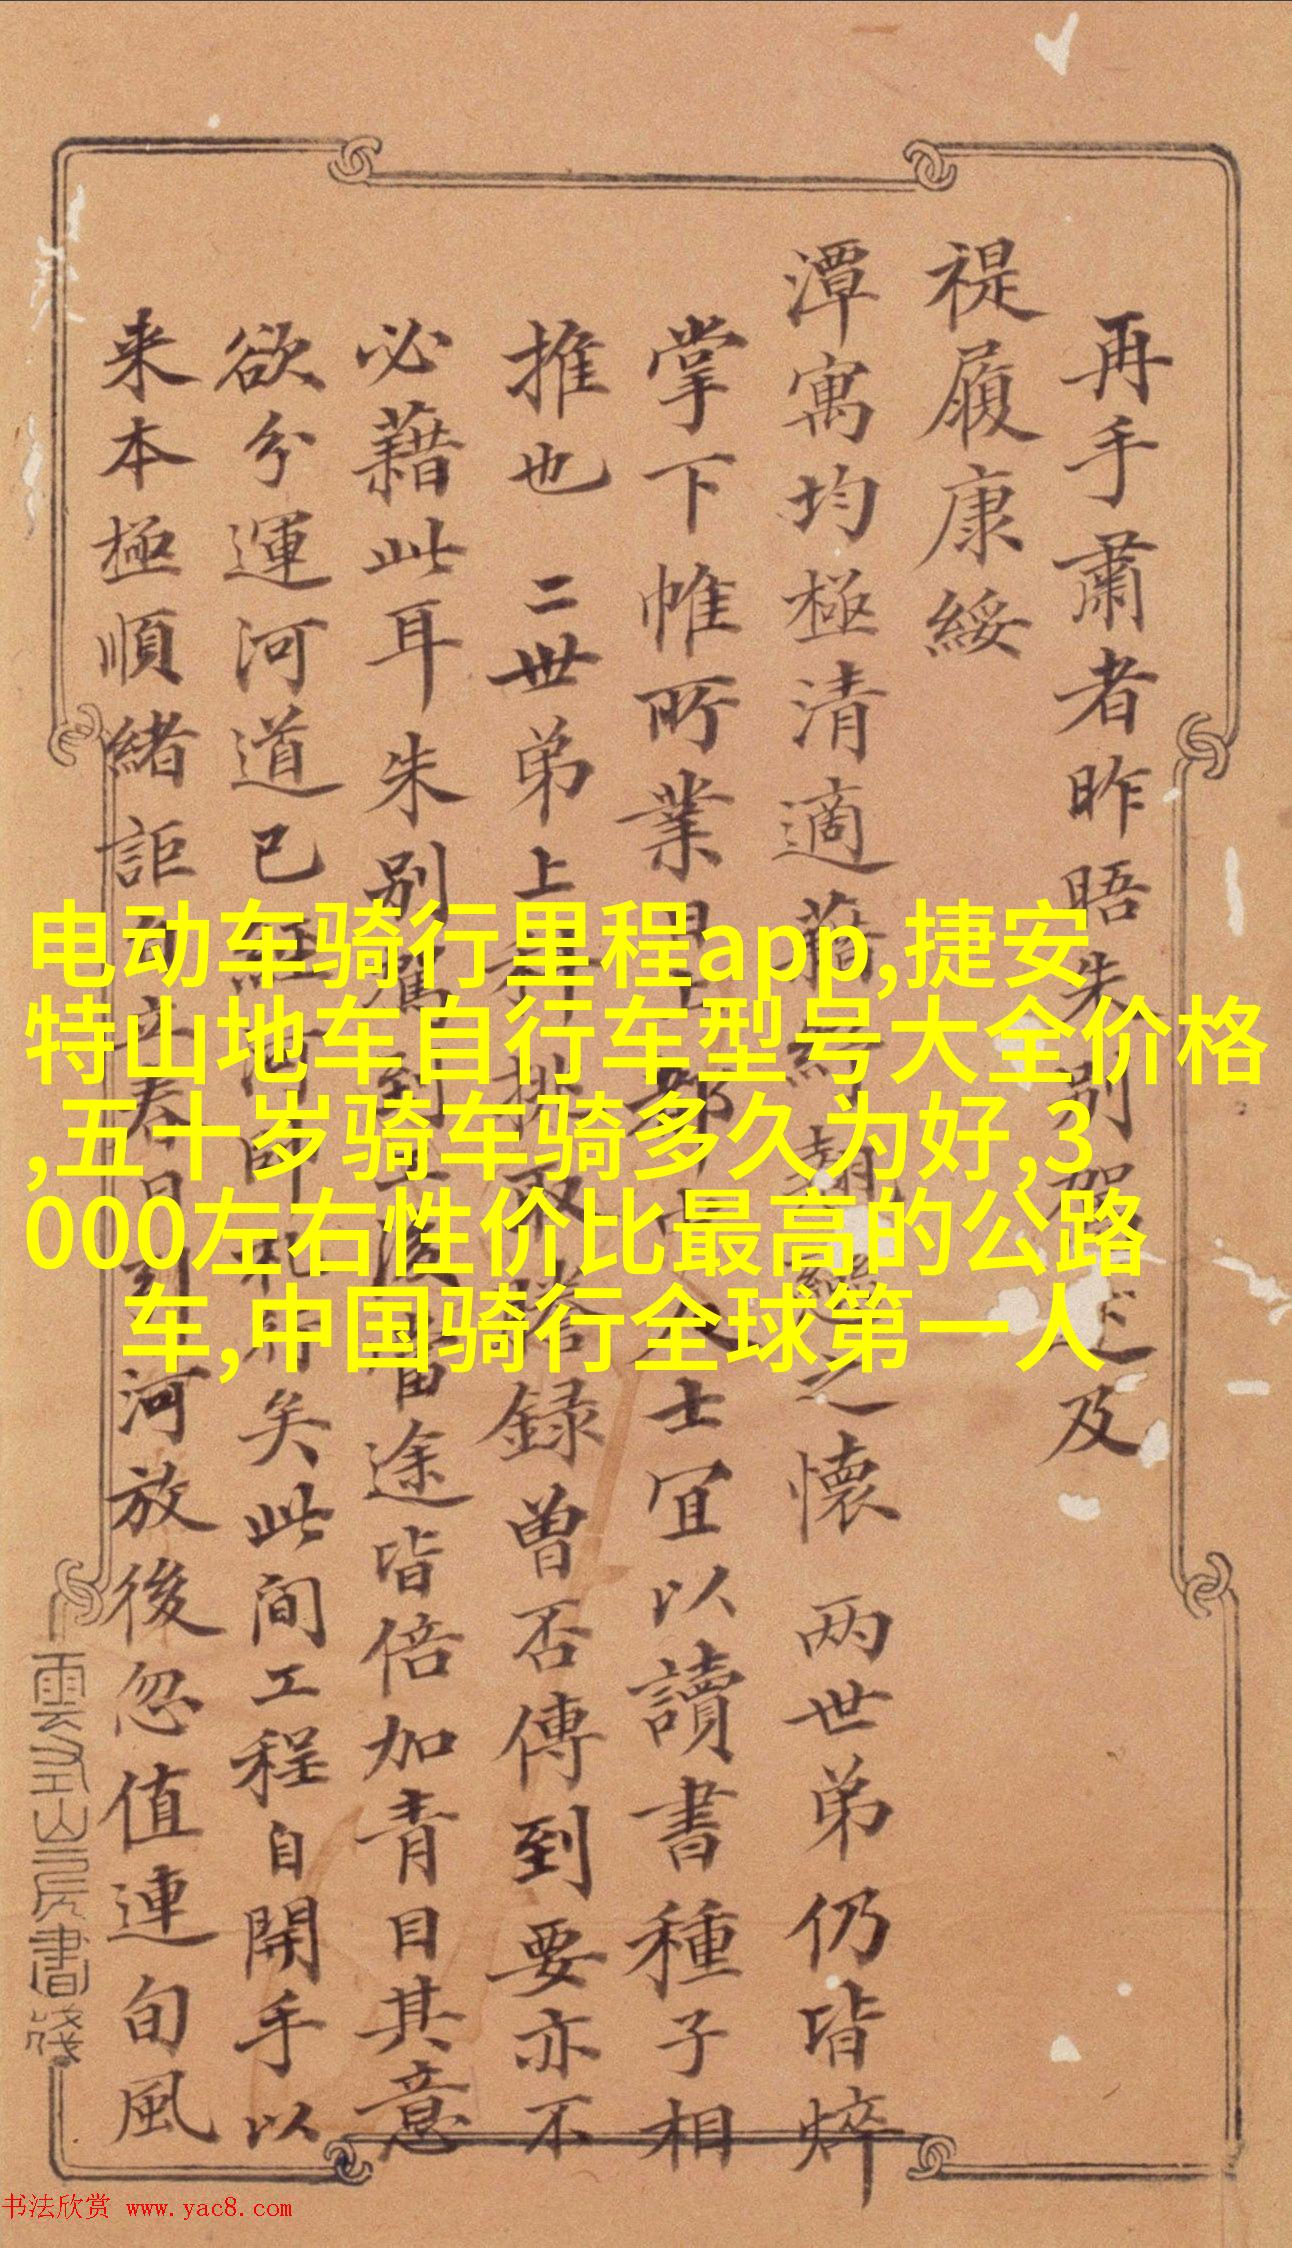 再手肅者昨晤朱別駕
及
禔履康綏
潭寓均極清適藉
之懷两世弟仍皆焠
掌下帷所業日上都
人士宜以讀書種子相
推也二世弟上科挑取謄錄曾否傳到要亦不
必藉此耳朱別駕到
當途皆倍加青目其意
欲兮運河道已經河帥札行矣此間工程自開手以
来本極順緒詎自立春日到河放後忽值連旬風
雲
山房書箋
电动车骑行里程app,捷安
特山地车自行车型号大全价格
,五十岁骑车骑多久为好,3
000左右性价比最高的公路
车,中国骑行全球第一人
书法欣赏 www.yac8.com